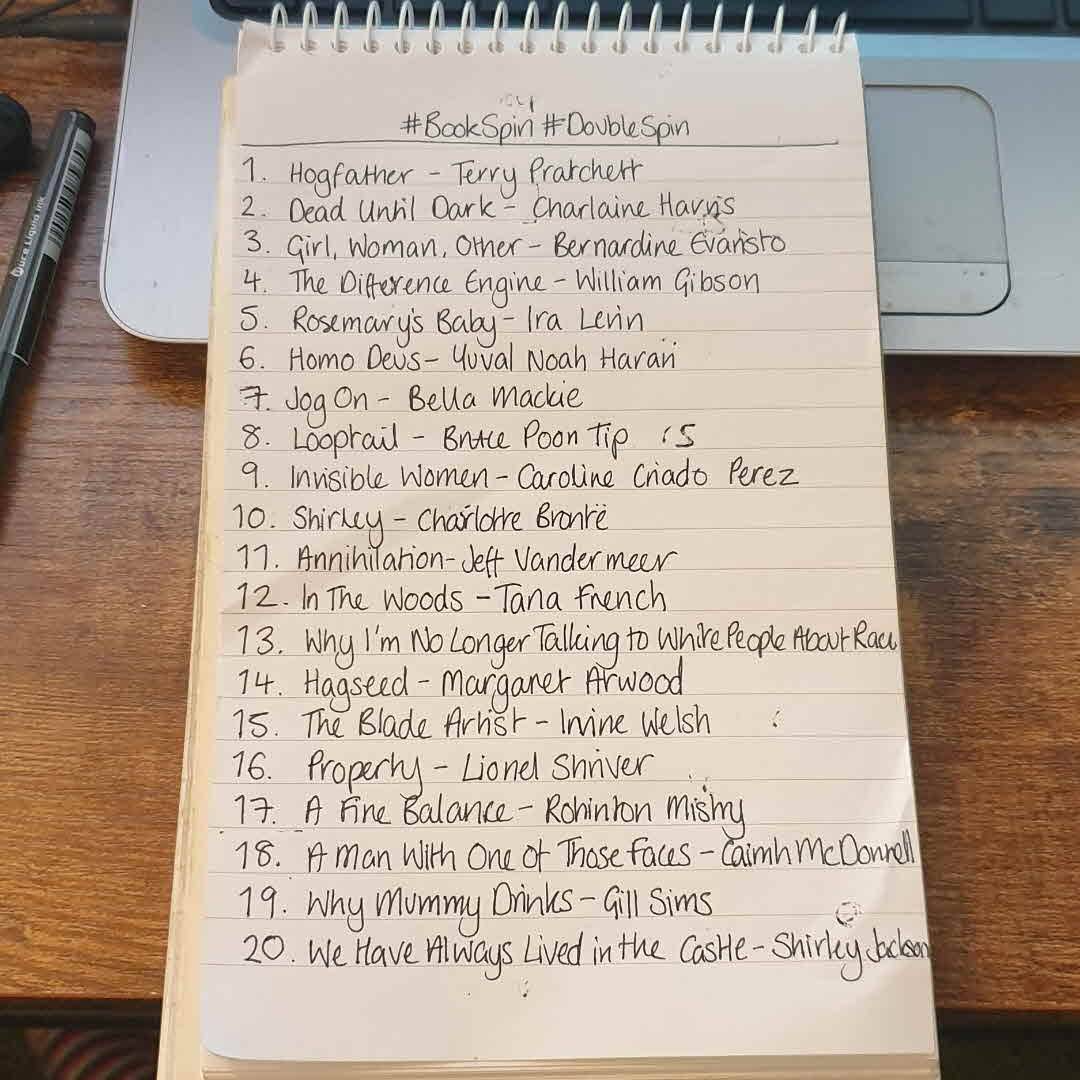 #BookSpin #DoubleSpin
1. Hogfather - Terry Pratchett
2. Dead Until Dark - Charlaine Harris
3. Girl, Woman, Other - Bernardine Evaristo
4. The Difference Engine - William Gibson
5. Rosemary's Baby - Ira Levin
6. Homo Deus - Yuval Noah Harari
7. Jog On - Bella Mackie
8. Looptail - Bruce Poon Tip
9. Invisible Women - Caroline Criado Perez
10. Shirley - Charlotte Brontë
11. Annihilation - Jeff Vandermeer
12. In The Woods - Tana French
13. Why I'm No Longer Talking to White People About Race
14. Hagseed - Margaret Atwood
15. The Blade Artist - Irvine Welsh
16. Property - Lionel Shriver
17. A Fine Balance - Rohinton Mistry
18. A Man With One Of Those Faces - Caimh McDonnell
19. Why Mummy Drinks - Gill Sims
20. We Have Always Lived in the Castle - Shirley Jackson
Liquid Ink